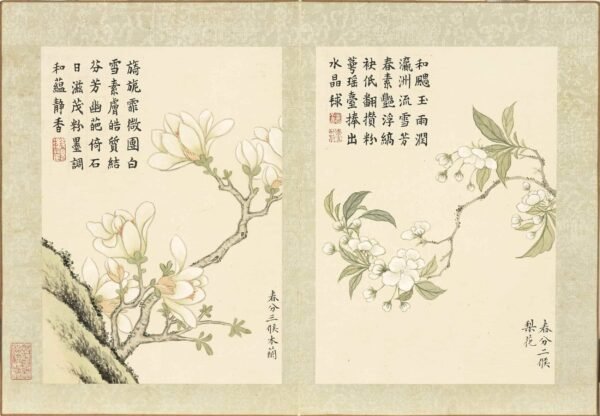 和颸玉雨潤
瀛洲流雪芳
春素艷浮縞
袂低翻攢粉
萼瑤臺捧出
水晶毬
春分二候
梨花
旖旎霏微團白
雪素膚皓質結
芬芳幽葩倚石
日滋茂粉墨調
和蘊靜香
春分三候木蘭